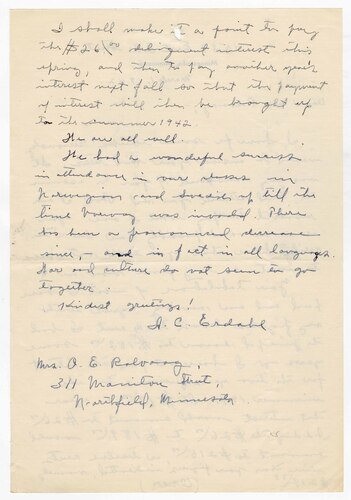 I shall make it a point to pay
the $26.00 delinquent interest this
spring, and then to pay another year's
interest next fall so that the payment
of interest will then be brought up
to the summer 1942.
We are all well.
We had a wonderful success
in attendance in our classes in
Norwegian and Swedish up till the
time Norway was invaded. There
has been a pronounced decrease
since, - and in fact in all languages.
War and culture do not seem to go
together.
Kindest greetings!
A. C. Erdahl
Mrs. O. E. Rolvaag,
311 Manitou Street,
Northfield, Minnesota